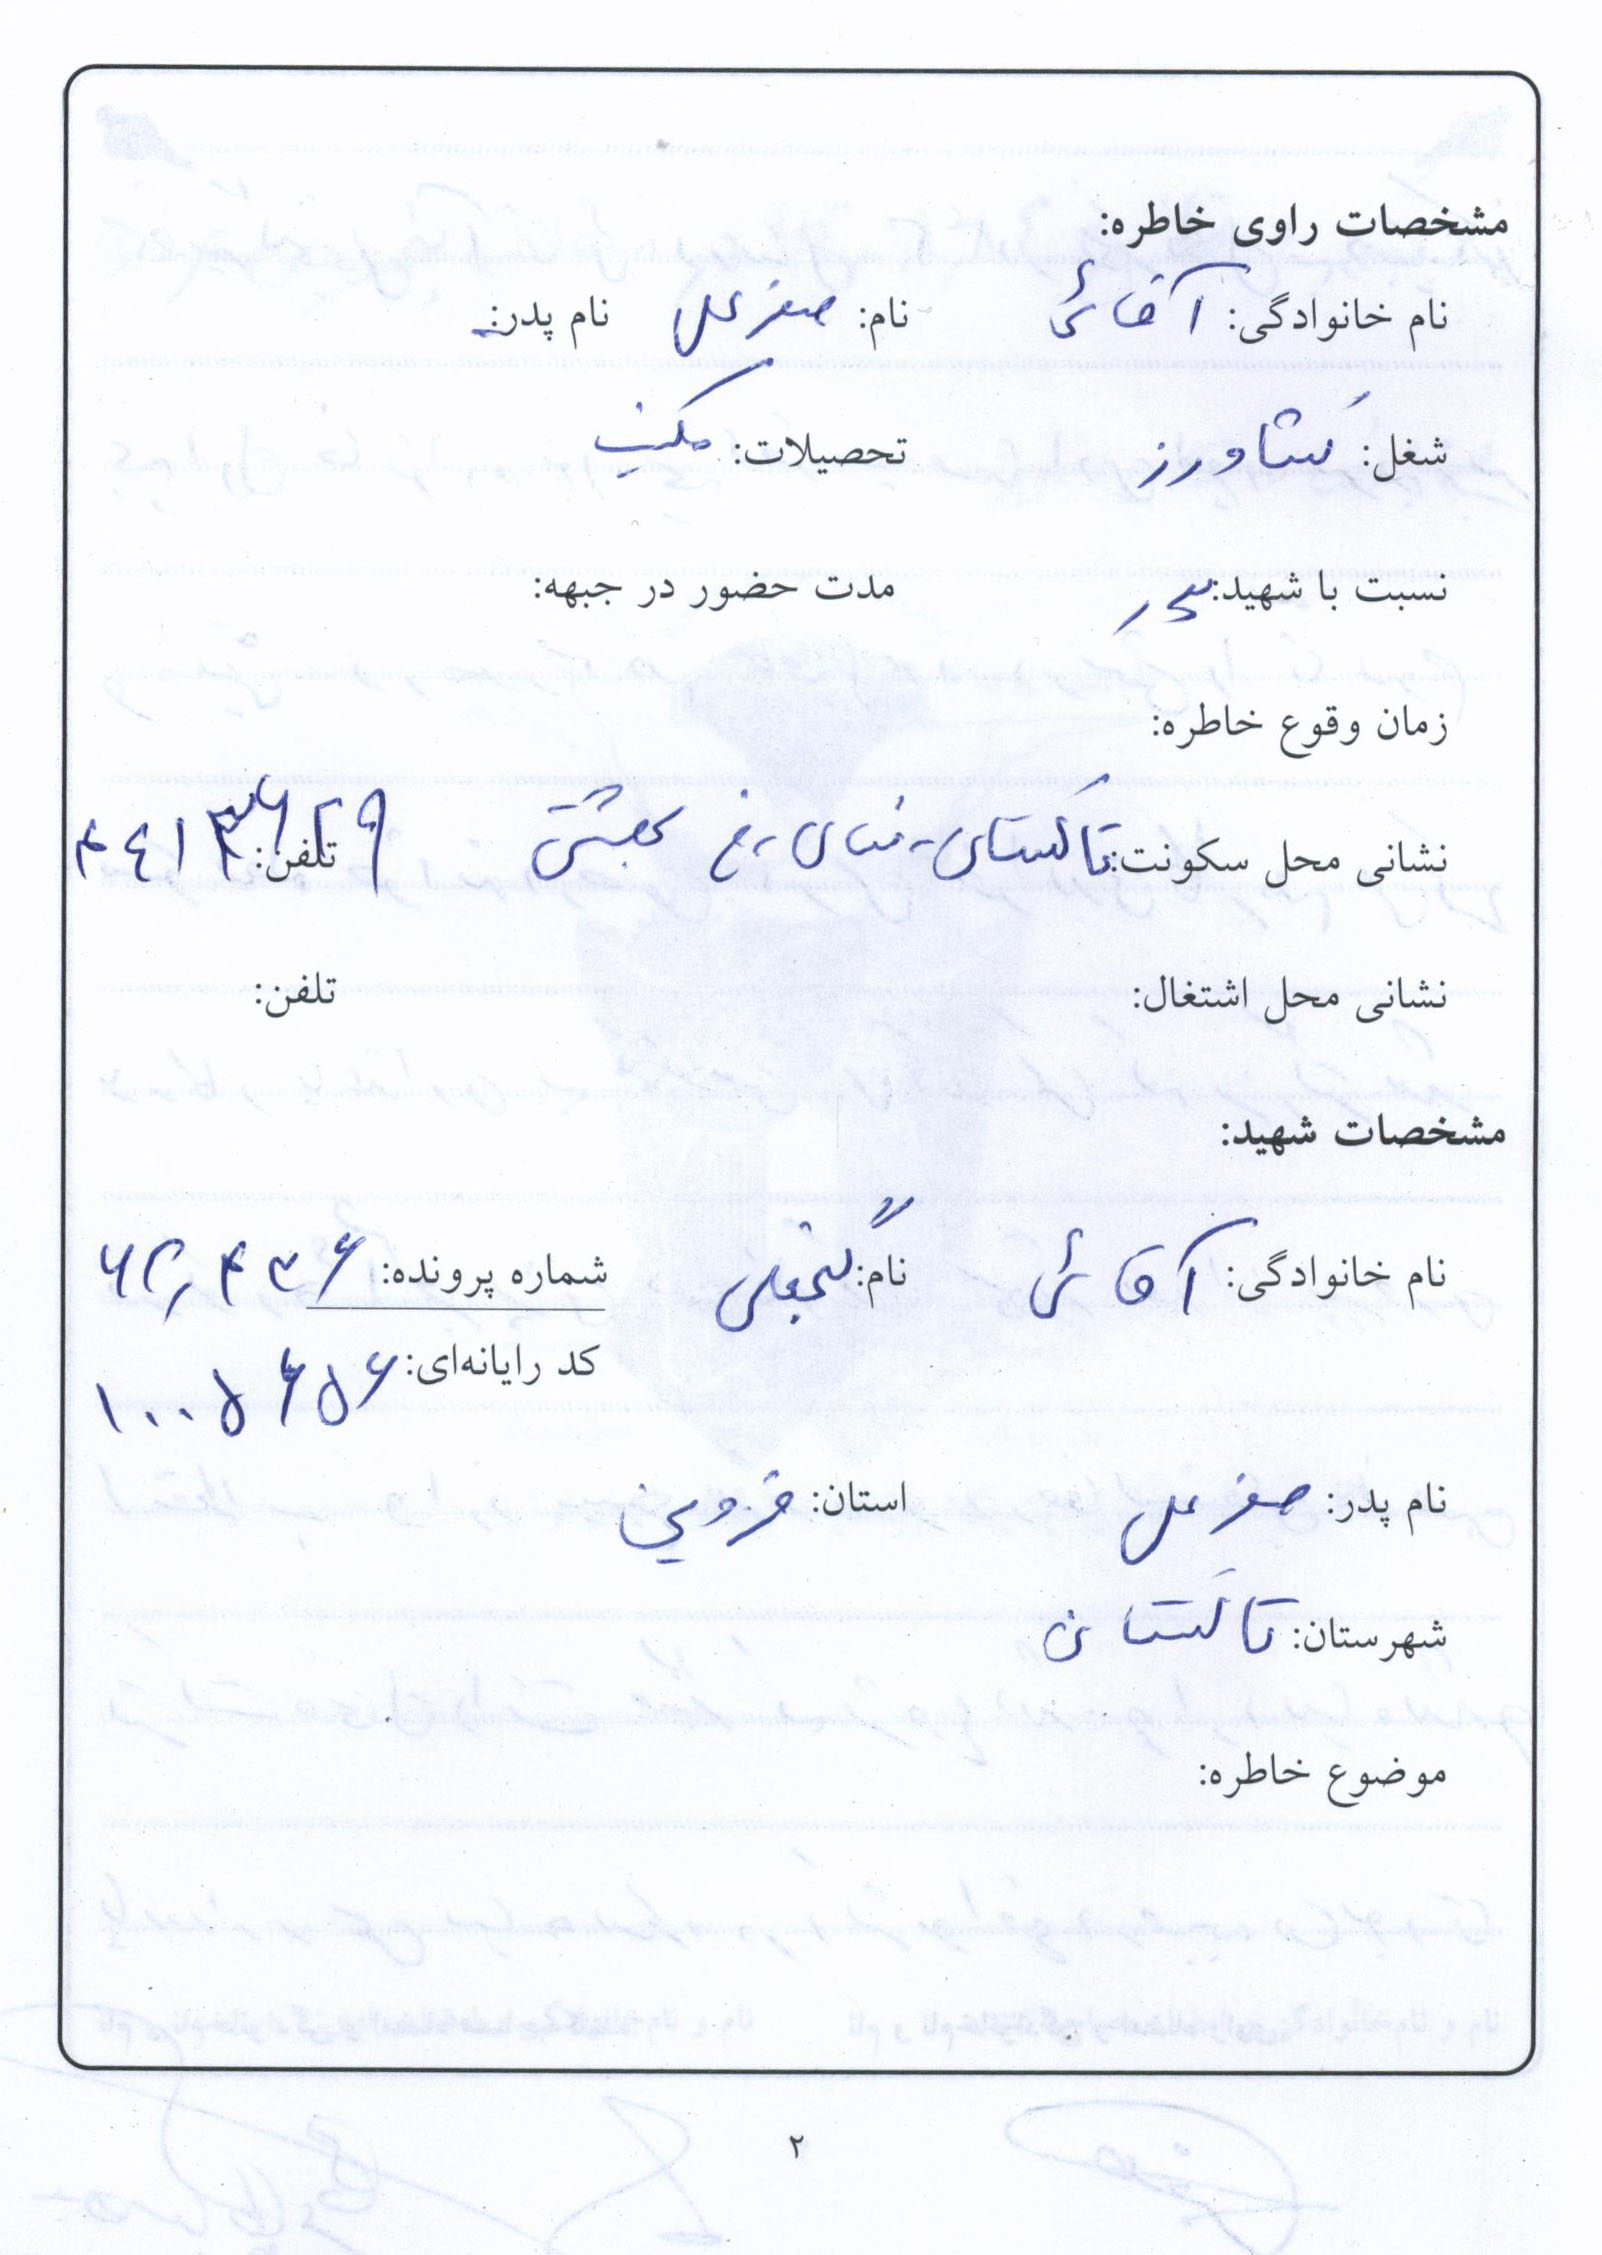 مشخصات راوی خاطره:
نام خانوادگی: آقائی نام: صفرعلی نام پدر:
شغل: کشاورز تحصیلات: مکتب
نسبت با شهید: پدر مدت حضور در جبهه:
زمان وقوع خاطره:
نشانی محل سکونت: تاکستان - خ بهشتی تلفن:
نشانی محل اشتغال: تلفن:
مشخصات شهید:
نام خانوادگی: آقائی نام: گنجعلی شماره پرونده:
کد رایانه‌ای: ۱۰۰۵۶۵۶
نام پدر: صفرعلی استان: قزوین
شهرستان: تاکستان
موضوع خاطره:
۲